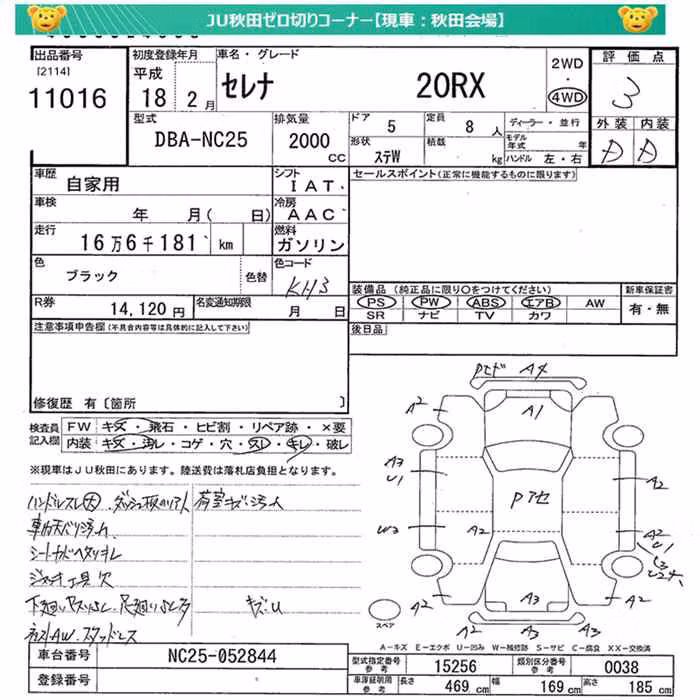 JU秋田ゼロ切りコーナー【現車：秋田会場】
出品番号
[2114]
11016
初度登録年月
平成
18 2月
車名・グレード
セレナ 20RX
2WD
・
4WD
評価点
3
外装 内装
型式
DBA-NC25
排気量
2000
CC
ドア 5
形状 ステW
定員 8 人
積載 kg
ディーラー・並行
モデル年式 年
ハンドル 左・右
車歴 自家用
シフト IAT.
セールスポイント(正常に機能するものに限ります)
車検 年 月( 日)
冷房 AAC
走行 16万6千181 km
燃料 ガソリン
色 ブラック 色替
色コード KH3
R券 14,120円
名変通知期限 月 日
装備品 (純正品に限り○をつけてください)
新車保証書
PS PW ABS エアB AW
有・無
SR ナビ TV カワ
注意事項申告欄(不具合内容等は具体的に記入して下さい)
後日品
修復歴 有〔箇所 〕
検査員記入欄
FW キズ・飛石・ヒビ割・リペア跡・×要
内装 キズ・汚レ・コゲ・穴・スレ・キレ・破レ
※現車はJU秋田にあります。陸送費は落札店負担となります。
ハンドルスレ大
荷室キズ汚れ
シートカドヘタリキレ
ジャッキ工具欠
キズU
社AW.スタッドレス
A4
A2 A1 A2
U1
Pアセ
A2
W2 A2 A2
U1
A2 A3 A2
A3 A3
スペア
A－キズ E－エクボ U－凹み W－補修跡 S－サビ C－腐食 XX－交換済
車台番号 NC25-052844
型式指定番号 15256
類別区分番号 0038
登録番号
車庫証明用参考
長さ 469 cm
幅 169 cm
高さ 185 cm